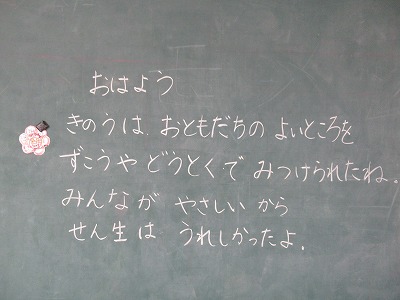 おはよう
きのうは、おともだちの よいところを
ずこうや どうとくで みつけられたね。
みんなが やさしいから
せん生は うれしかったよ。